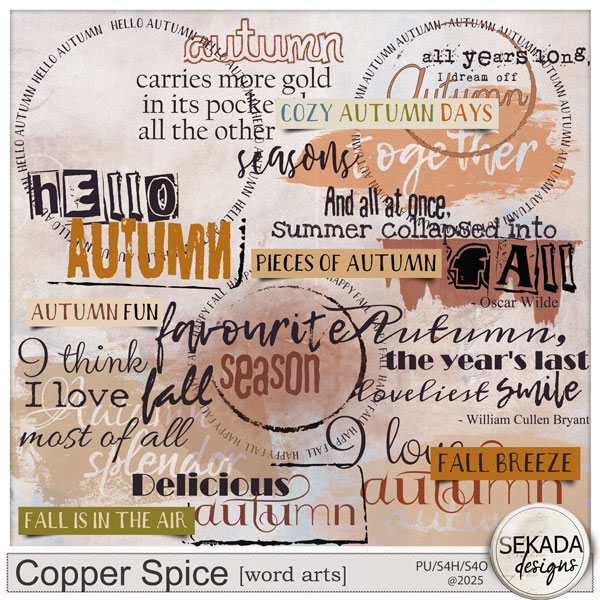 HELLO AUTUMN HELLO AUTUMN HELLO AUTUMN
autumn
carries more gold
in its pocke
all the other
seasons
COZY AUTUMN DAYS
all years long,
I dream off
Autumn
AUTUMN AUTUMN AUTUMN AUTUMN
together
HELLO
AUTUMN
And all at once,
summer collapsed into
FALL
- Oscar Wilde
PIECES OF AUTUMN
AUTUMN FUN
HAPPY FALL HAPPY FALL HAPPY FALL
favourite
season
Autumn,
the year's last
loveliest smile
- William Cullen Bryant
I think
I love fall
most of all
Autumn
splendor
I love
autumn
autumn
FALL BREEZE
Delicious
autumn
FALL IS IN THE AIR
Copper Spice [word arts]
PU/S4H/S4O
@2025
SEKADA
designs